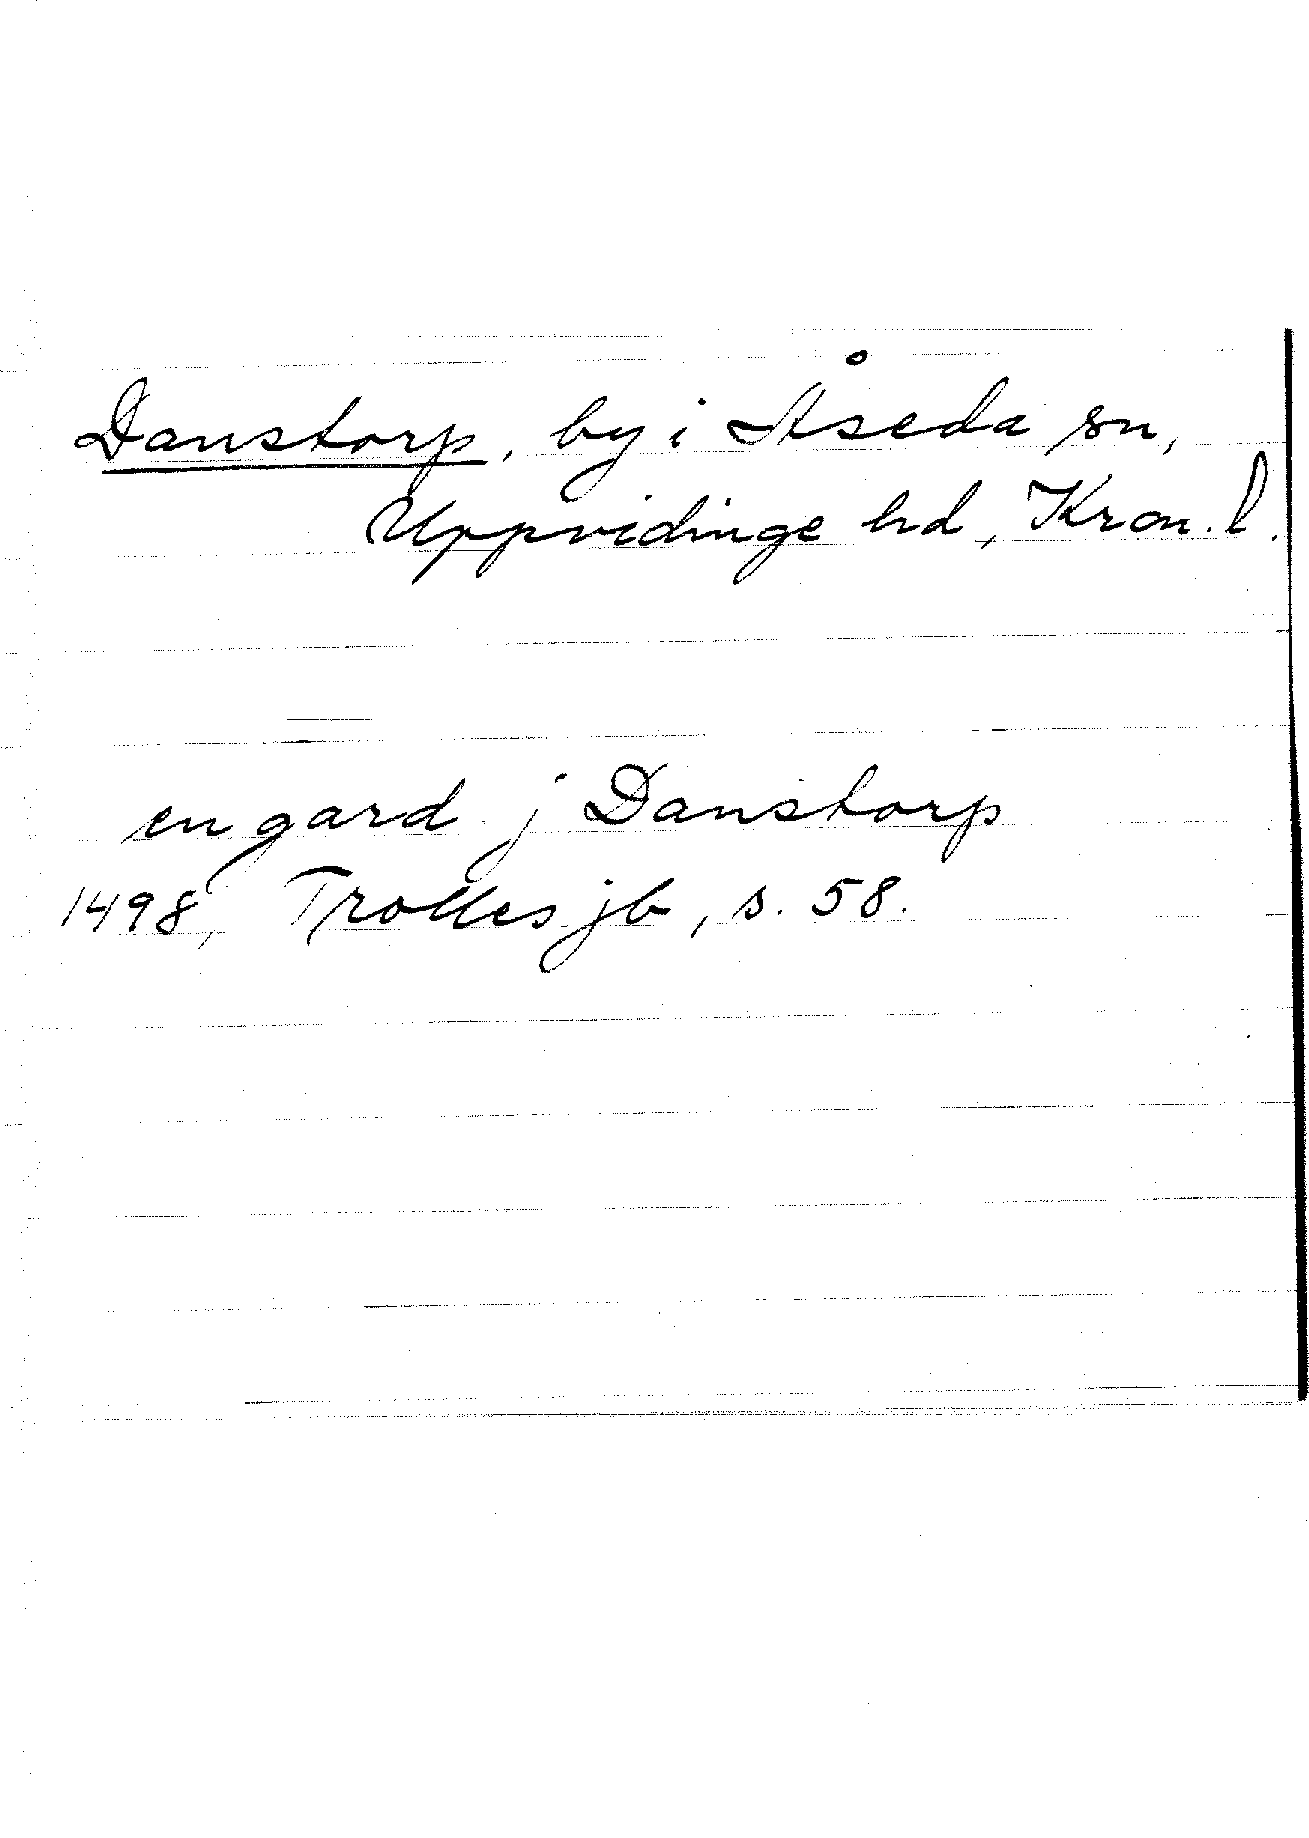 Danstorp, by i Åseda sn,
Uppvidinge hd, Kron. l.
en gard j Danstorp
1498, Trolles jb, s. 58.